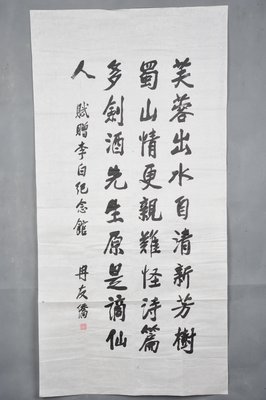 芙蓉出水自清新芳樹
蜀山情更親難怪詩篇
多劍酒先生原是謫仙
人
賦贈李白纪念館
冉友僑